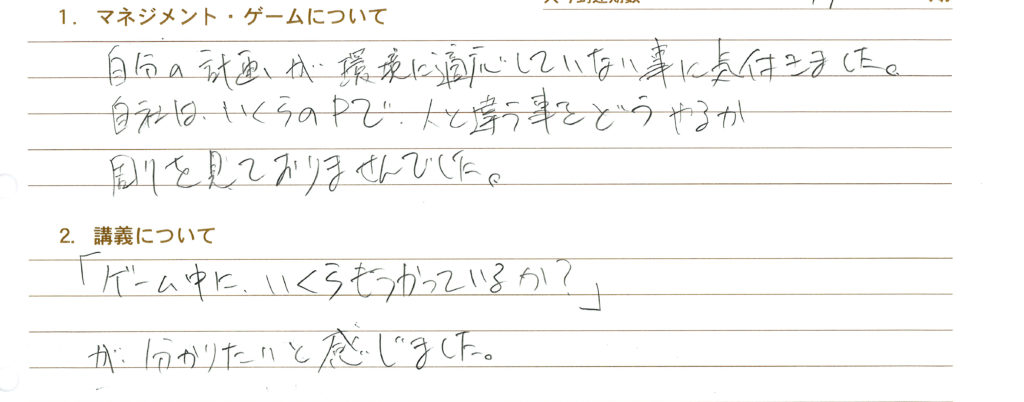 1. マネジメント・ゲームについて
自分の計画が環境に適応していない事に気付きました。
自社は、いくらの中で、人と違う事をどうやるか
周りを見ておりませんでした。
2. 講義について
「ゲーム中に、いくらもうかっているか?」
が、分かりたいと感じました。